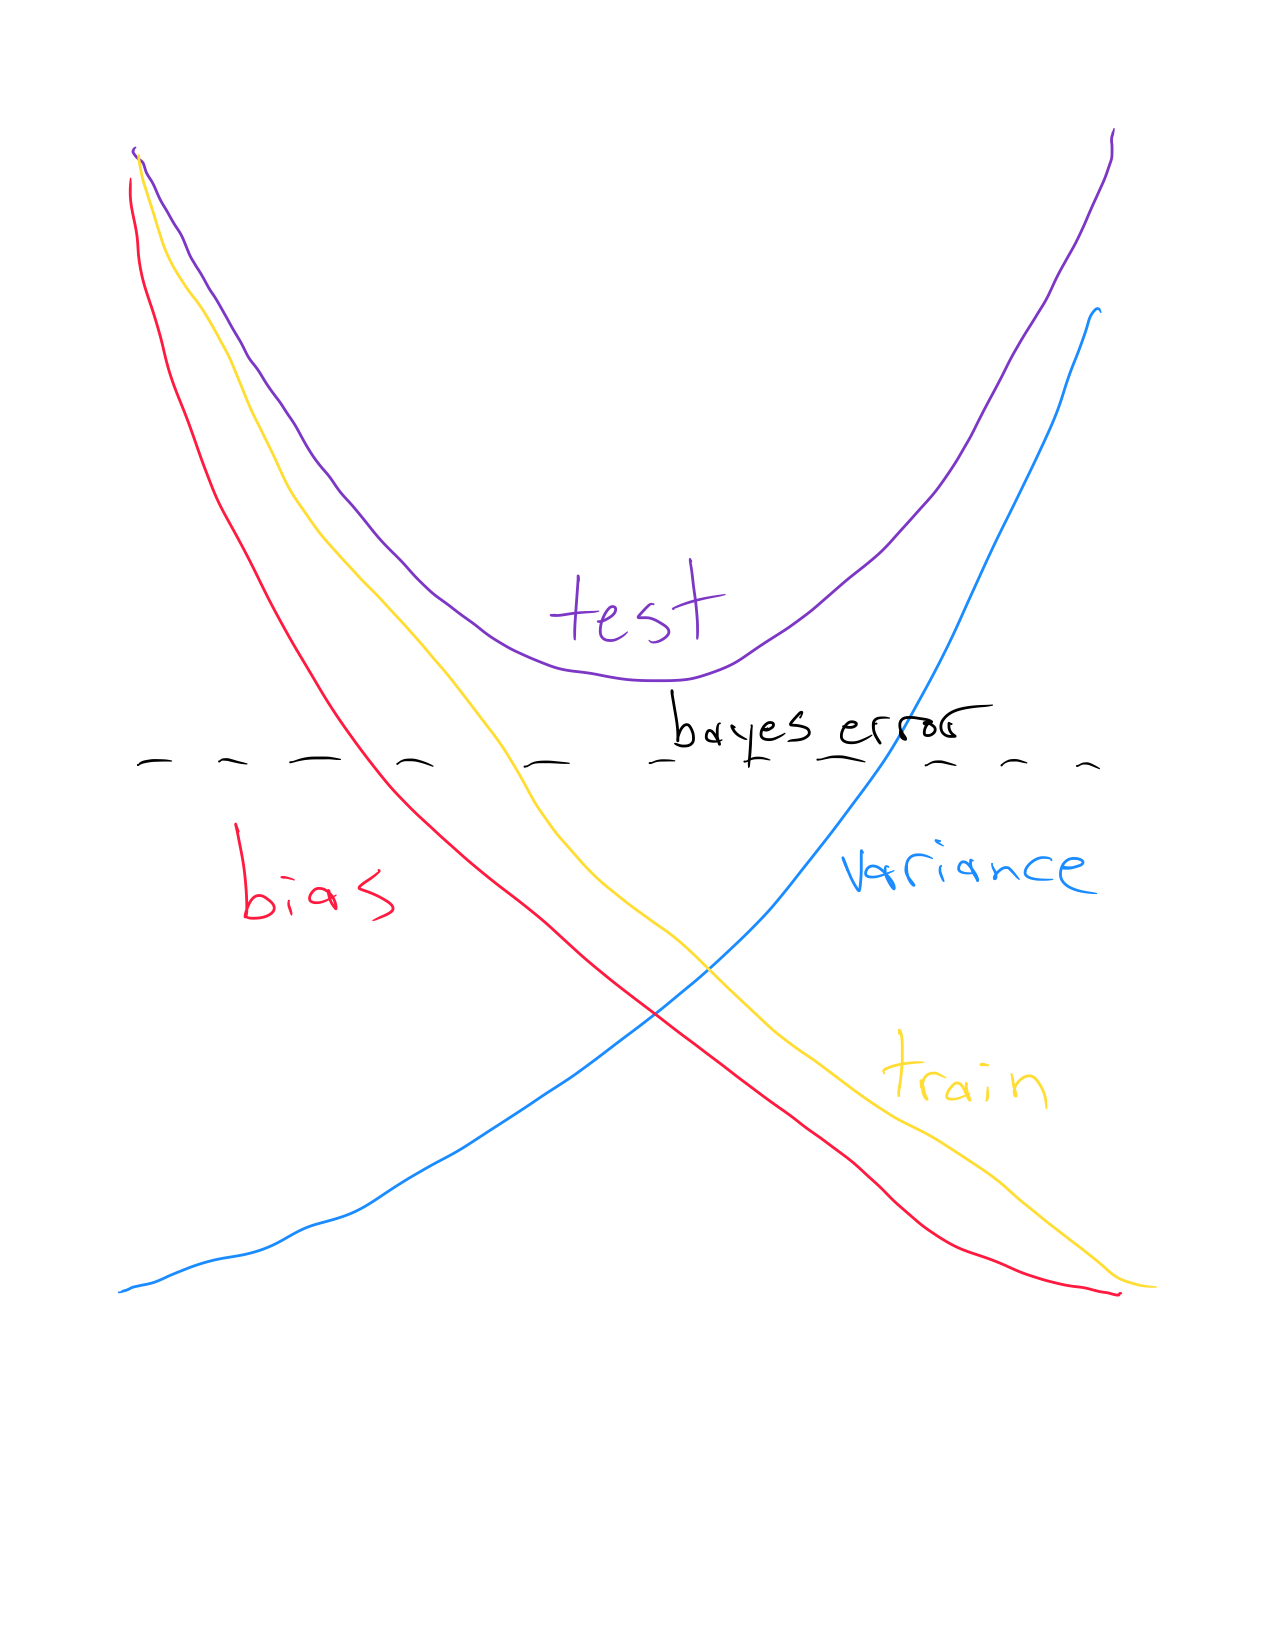 test
bayes error
bias
variance
train